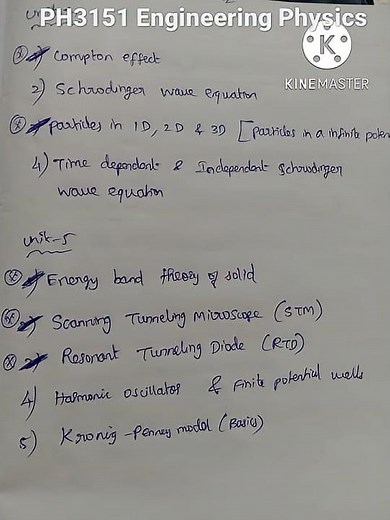 PH3151 Engineering Physics
K
KINEMASTER
1) Compton effect
2) Schrodinger wave equation
particles in 1D, 2D & 3D [particles in a infinite poten
4) Time dependant & Independent Schrodinger
wave equation
unit-5
1) Energy band theory of solid
2) Scanning Tunneling Microscope (STM)
Resonant Tunneling Diode (RTD)
4) Harmonic Oscillator & Finite potential wells
5) Kronig-Penney model (Basics)